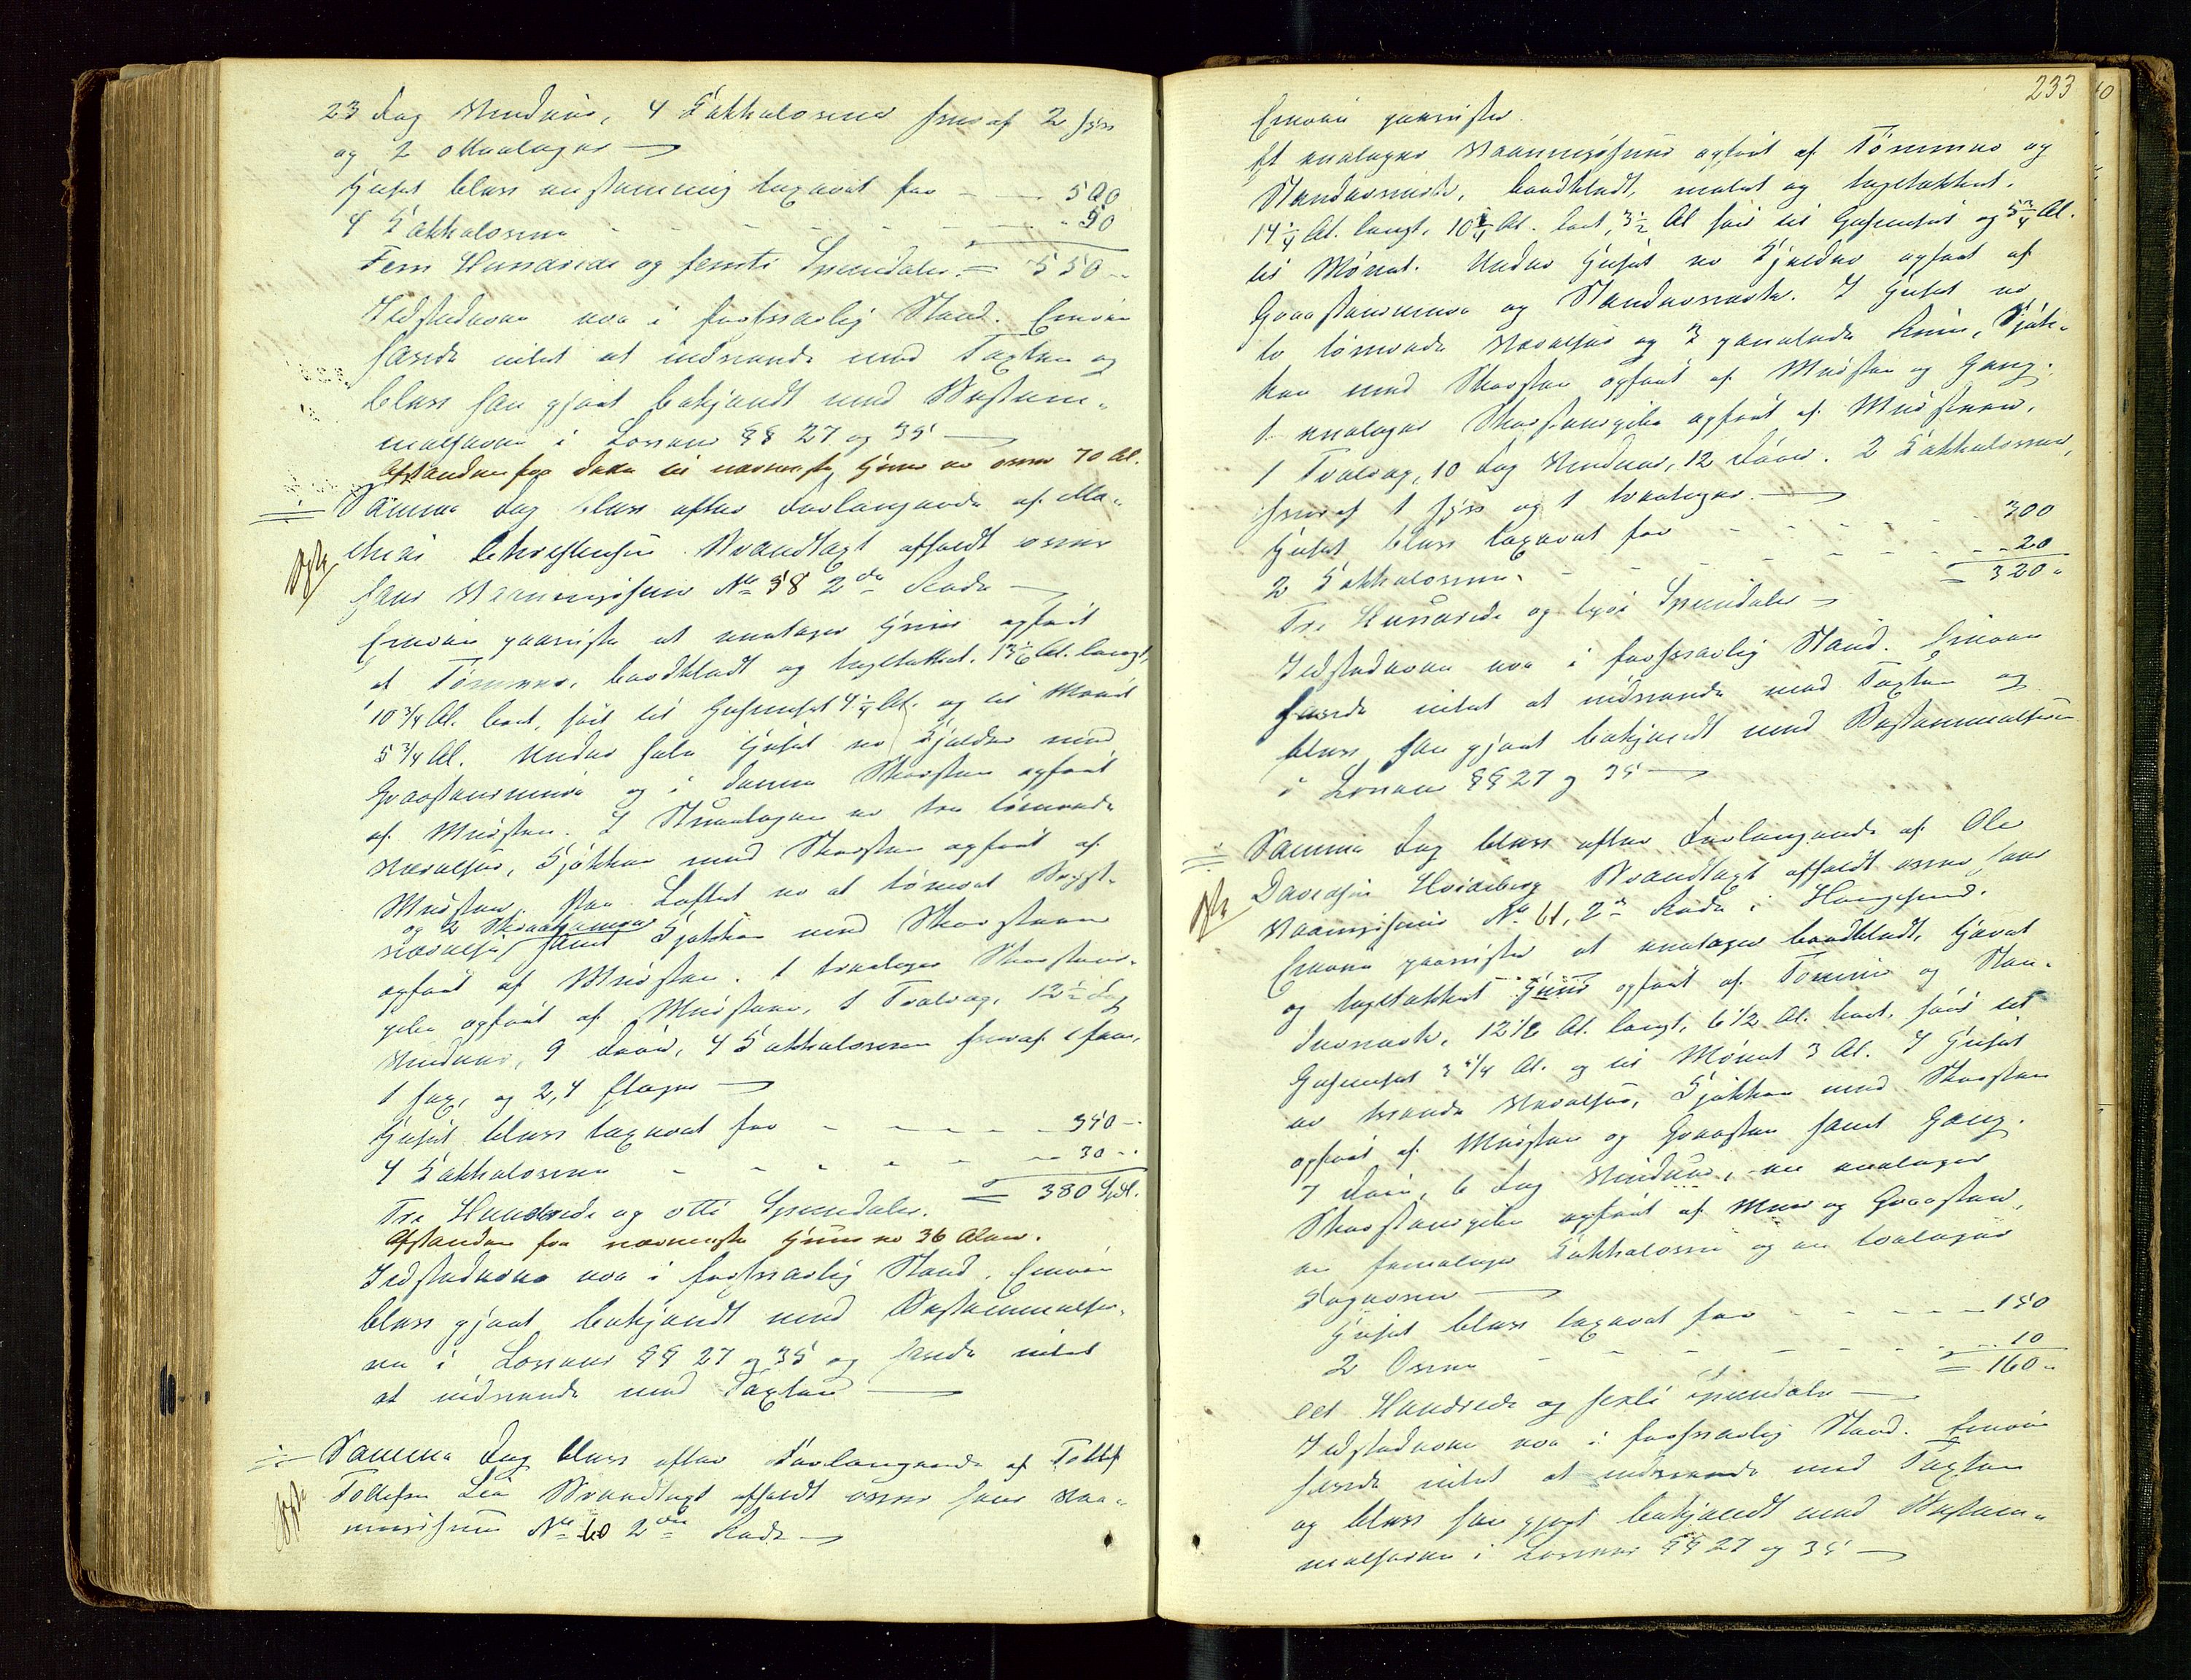 23 Fag Vinduer, 4 Kakkelovne hver af 2 hjør
og 2 Etaalager
Huset blev enstemmig taxeret for - - 500
4 Kakkelovne - - - - 50
Fem Hundrede og femti Speciedaler. = 550 -
Ildstederne var i forsvarlig Stand. Eieren
havde intet at indvende mod Taxten og
blev han gjort bekjendt med Bestem-
melserne i Lovens §§ 27 og 35
Afstanden fra dette til nærmeste Huus er over 70 Al.
Samme Dag blev efter Forlangende af Ma-
thias Christensen Brandtaxt afholdt over
hans Vaaningshuus No 58 2den Rode
Eieren paaviste et enetages Huus opført
af Tømmer, bordklædt og tegltækket. 13 1/6 Al. langt,
10 3/4 Al. bredt, høit til Gesimset 4 1/4 Al. og til Mønet
5 3/4 Al. Under hele Huset er Kjelder med
Graastensmuur og i denne Skorsten opført
af Muursten. I Stueetagen er tre tømrede
Værelser, Kjøkken med Skorsten opført af
Muursten. Paa Loftet er et tømret Bryst-
værelse og 2 Skraakamre samt Kjøkken med Skorsteen
opført af Muursten. 1 treetages Skorsteens-
pibe opført af Muursteen, 1 Kvalvag, 12 1/2 Fag
Vinduer, 9 Døre, 4 Kakkelovne hver af 1 fem,
1 sex, og 2, 4 Etager
Huset blev taxeret for - - - - 350 -
4 Kakkelovne - - - - - 30 -
Tre Hundrede og otti Speciedaler. = 380 Spd.
Afstanden fra nærmeste Huus er 36 Alen.
Ildstederne var i forsvarlig Stand. Eieren
blev gjort bekjendt med Bestemmelser-
ne i Lovens §§ 27 og 35 og havde intet
at indvende mod Taxten
Samme Dag blev efter Forlangende af Tollef
Tollefsen Lie Brandtaxt afholdt over hans Vaa-
ningshuus No 60 2den Rode
233
Eieren paaviste
Et enetages Vaaningshuus opført af Tømmer og
Standerværk, bordklædt, malet og tegltækket.
14 1/4 Al. langt, 10 1/4 Al. bredt, 3 1/2 Al høit til Gesimset og 5 3/4 Al.
til Mønet. Under Huset er Kjelder opført af
Graasteensmuur og Standerværk. I Huset er
to tømrede Værelser og 2 panelede Rum, Kjøk-
ken med Skorsten opført af Muursten og Gang.
1 enetages Skorstenspibe opført af Muursteen.
1 Kvalvag, 10 Fag Vinduer, 12 Døre. 2 Kakkelovne,
hver af 1 hjør og 1 treetages.
Huset blev taxeret for - - - - 300
2 Kakkelovne. - - - - - 20
Tre Hundrede og tyve Speciedaler = 320 -
Ildstederne var i forsvarlig Stand. Eieren
havde intet at indvende mod Taxten og
blev han gjort bekjendt med Bestemmelserne
i Lovens §§ 27 og 35
Samme Dag blev efter Forlangende af Ole
Davidsen Hvideberg Brandtaxt afholdt over hans
Vaaningshuus No 61, 2den Rode i Haugesund.
Eieren paaviste et enetages bordklædt, tjæret
og tegltækket Huus opført af Tømmer og Stan-
derværk, 12 1/2 Al. langt, 6 1/2 Al. bredt, høit til
Gesimset 3 1/4 Al. og til Mønet 3 Al. I Huset
er tvende Værelser, Kjøkken med Skorsten
opført af Muursten og Graasten samt Gang.
7 Døre, 6 Fag Vinduer, en enetages
Skorstenspibe opført af Muur og Graasteen,
en femetages Kakkelovn og en toetages
Bageovn
Huset blev taxeret for - - - - 150
2 Ovne - - - - - 10
Eet Hundrede og sexti Speciedaler = 160 -
Ildstederne var i forsvarlig Stand. Eieren
havde intet at indvende mod Taxten
og blev han gjort bekjendt med Bestem-
melserne i Lovens §§ 27 og 35